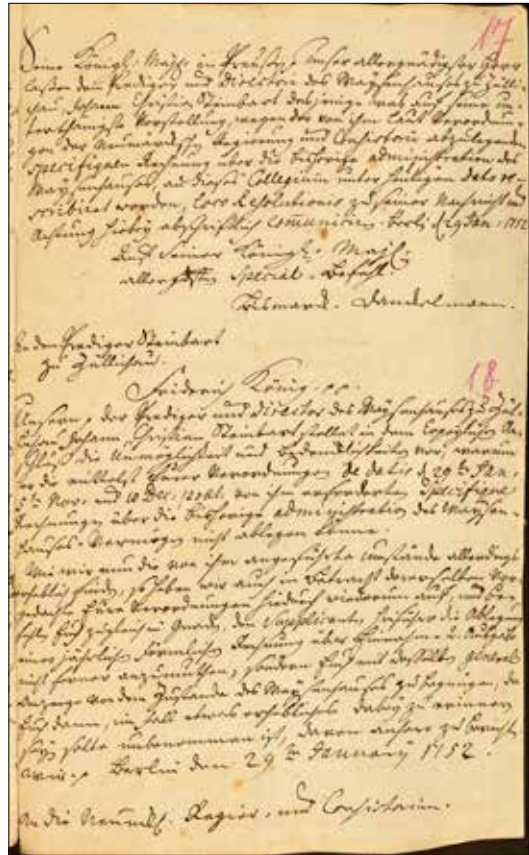 17
Seine Königl. Mayt. in Preußen, unser allergnädigster Herr
laßen dem Prediger und Directori des Waysenhauses zu Zülli-
chau Johann Christian Steinbart dasjenige was auf seine un-
terthänigste Vorstellung, wegen der von ihm laut Verordnun-
gen der Neumärckschen Regierung und Consistorii abzulegenden
specifiquen Rechnung über die bisherige administration des
Waysenhauses, an dieses Collegium unter heutigem dato re-
scribiret worden, loco Resolutionis zu seiner Nachricht und
Achtung hiebey abschriftlich communiciren. Berlin d 29 Jan. 1752
Auf Seiner Königl. Mayt.
allergdsten Special-Befehl
Bismarck. Danckelmann.
An den Prediger Steinbart
zu Züllichau.
18
Friderich König. pp.
Unsern, der Prediger und Director des Waysenhauses zu Zül-
lichau Johann Christian Steinbart stellet in dem
die Unmöglichkeit und Bedencklichkeiten vor, warum
er die Eurer Verordnungen de datis d 29ten Jan.
5ten Nov. und 10 Dec. von ihm erforderten Specifique
Rechnungen über die bisherige administration des Waysen-
hauses-Vermögens nicht ablegen könne.
Wie wir nun die von ihm angeführte Umstände allerdings
erheblich finden, so haben wir auch in Betracht derselben
gedachte Eure Verordnungen hiedurch wiederum auf, und be-
fehlen Euch zugleich in Gnaden, dem Supplicanten hinführo die Ablegung
einer jährlichen förmlichen Rechnung über Einnahme u. Ausgabe
nicht ferner anzumuthen, sondern Euch mit deßelben general
Anzeige von dem Zustande des Waysenhauses zu begnügen, da
Euch dann, im fall etwas erhebliches dabey zu erinnern
seyn solte unbenommen ist, davon anhero zu berich-
ten. Berlin den 29ten January 1752.
An die Neumk. Regier. und Consistorium.